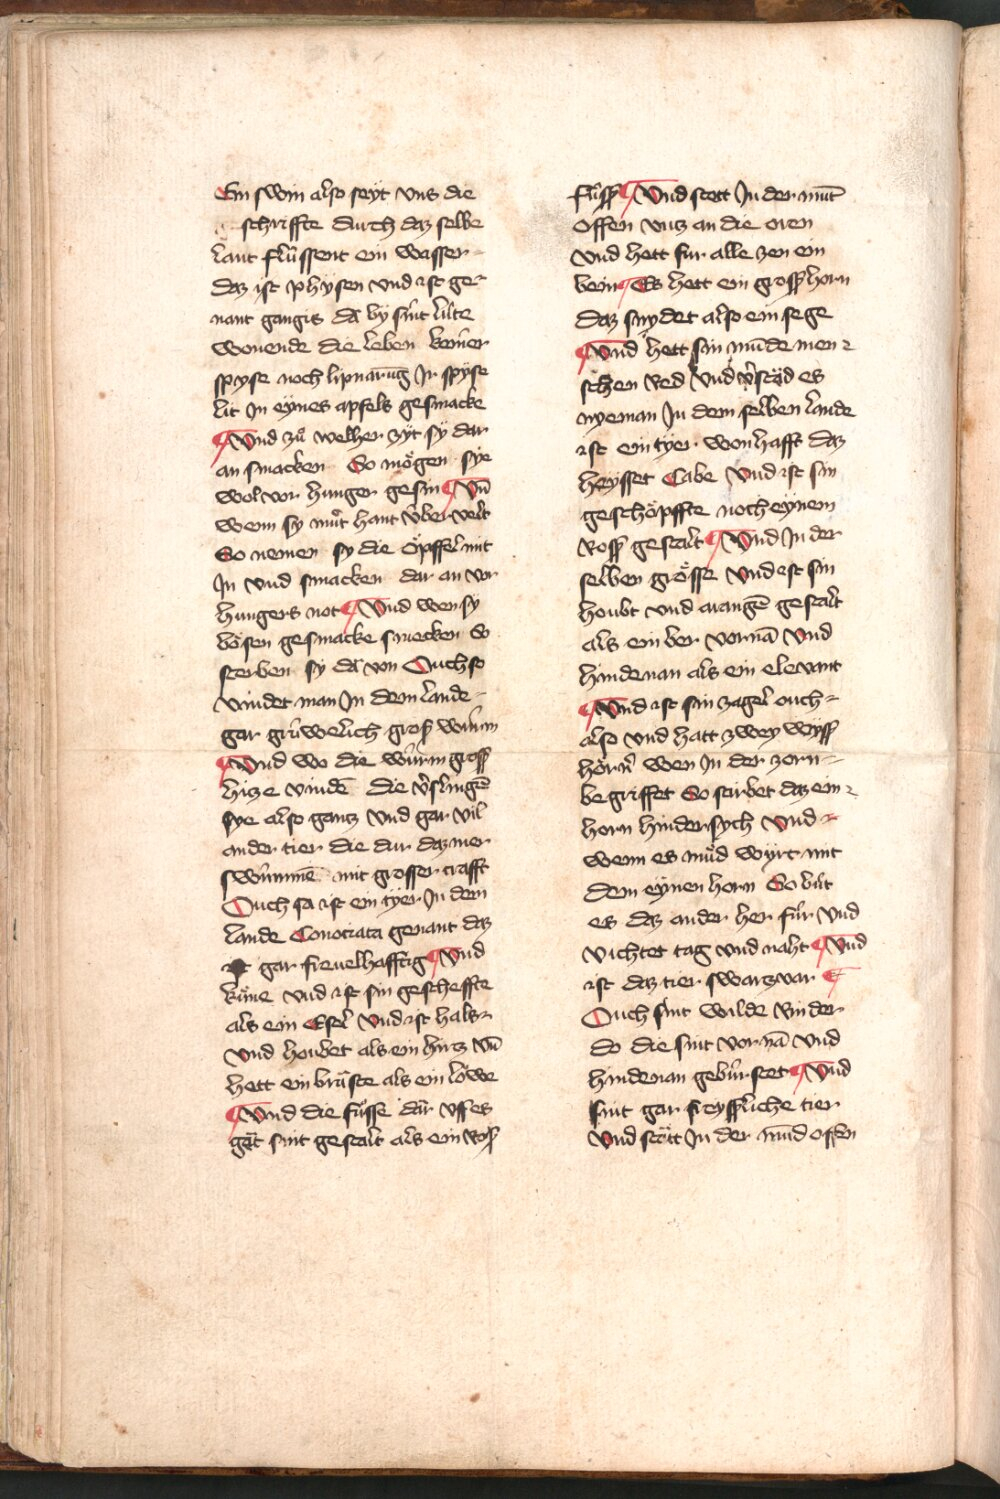 Ein swin also seÿt vns die
schriffte durch daz selbe
lant flússent ein wasser
daz ist physen vnd ist ge
nant gangis da by sint lúte
wonende die leben keiner
spyse noch lipnarūg Jr spÿse
lit Jn eynes apfels gesmacke
¶ Vnd zů welher zÿt sÿ dar
an smacken So mögen sye
wol vor hunger gesin ¶ Vn̄
wenn sy můt hant v̇ber velt
So nemen sy die öpffel mit
Jn vnd smacken dar an vor
hungers not ¶ Vnd wen sy
bösen gesmacke smecken So
sterben sy da von Ouch so
vindet man Jn dem lande
gar grúwelich groß wúrm
¶ Vnd wo die wúrm groß
hitze vindē die v̇slingē
sye also gantz vnd gar vil
ander tier die dur daz mer
swúmmē mit grosser crafft
Ouch so ist ein tÿer Jn dem
lande Conocrata genant daz
ist gar freuelhafftig ¶ Vnd
kúne vnd ist sin gescheffte
als ein Esel Vnd ist hals
vnd houbet als ein hirtz vn̄
hett ein brúste als ein löwe
¶ Vnd die fússe dar vff es
gat sint gestalt als ein roß
fúß ¶ Vnd stett Jn der mūt
offen vntz an die oren
vnd hett fur alle zen ein
bein ¶ Es hett ein groß horn
daz snydet also ein sege
¶ Vnd hett sin mūde men
schen red Vnd v̇stād es
nyeman Jn dem selben lande
ist ein tÿer wonhafft daz
heysset Cabe Vnd ist sin
geschöpffte noch eynem
Roß gestalt ¶ Vnd Jn der
selben grösse Vnd est sin
houbt vnd mangē gestalt
als ein ber vornā Vnd
hindenan als ein elevant
¶ Vnd ist sin zagel ouch
also vnd hatt zwey wyß
hörn wen Jn der zorn
begriffet So stirbet daz ein
horn hindersych Vnd
wenn es mud wyrt mit
dem eynen horn So bút
es daz ander her fúr Vnd
vichtet tag vnd naht ¶ Vnd
ist daz tier swartzvar ¶
Ouch sint wilde Rinder
do die sint vornā Vnd
hindenan gebúrstet ¶ Vnd
sint gar freyßliche tier
Vnd statt Jn der mund offen